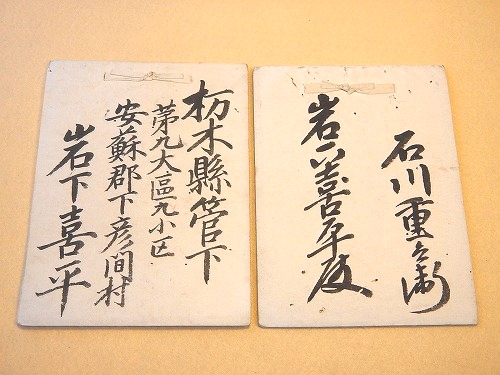 栃木縣管下
第九大區九小区
安蘇郡下彦間村
岩下喜平
石川重兵衛
岩下喜平殿